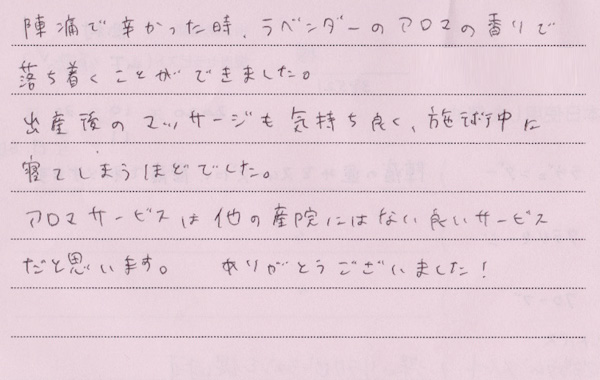 陣痛で辛かった時、ラベンダーのアロマの香りで
落ち着くことができました。
出産後のマッサージも気持ち良く、施術中に
寝てしまうほどでした。
アロマサービスは他の産院にはない良いサービス
だと思います。 ありがとうございました！